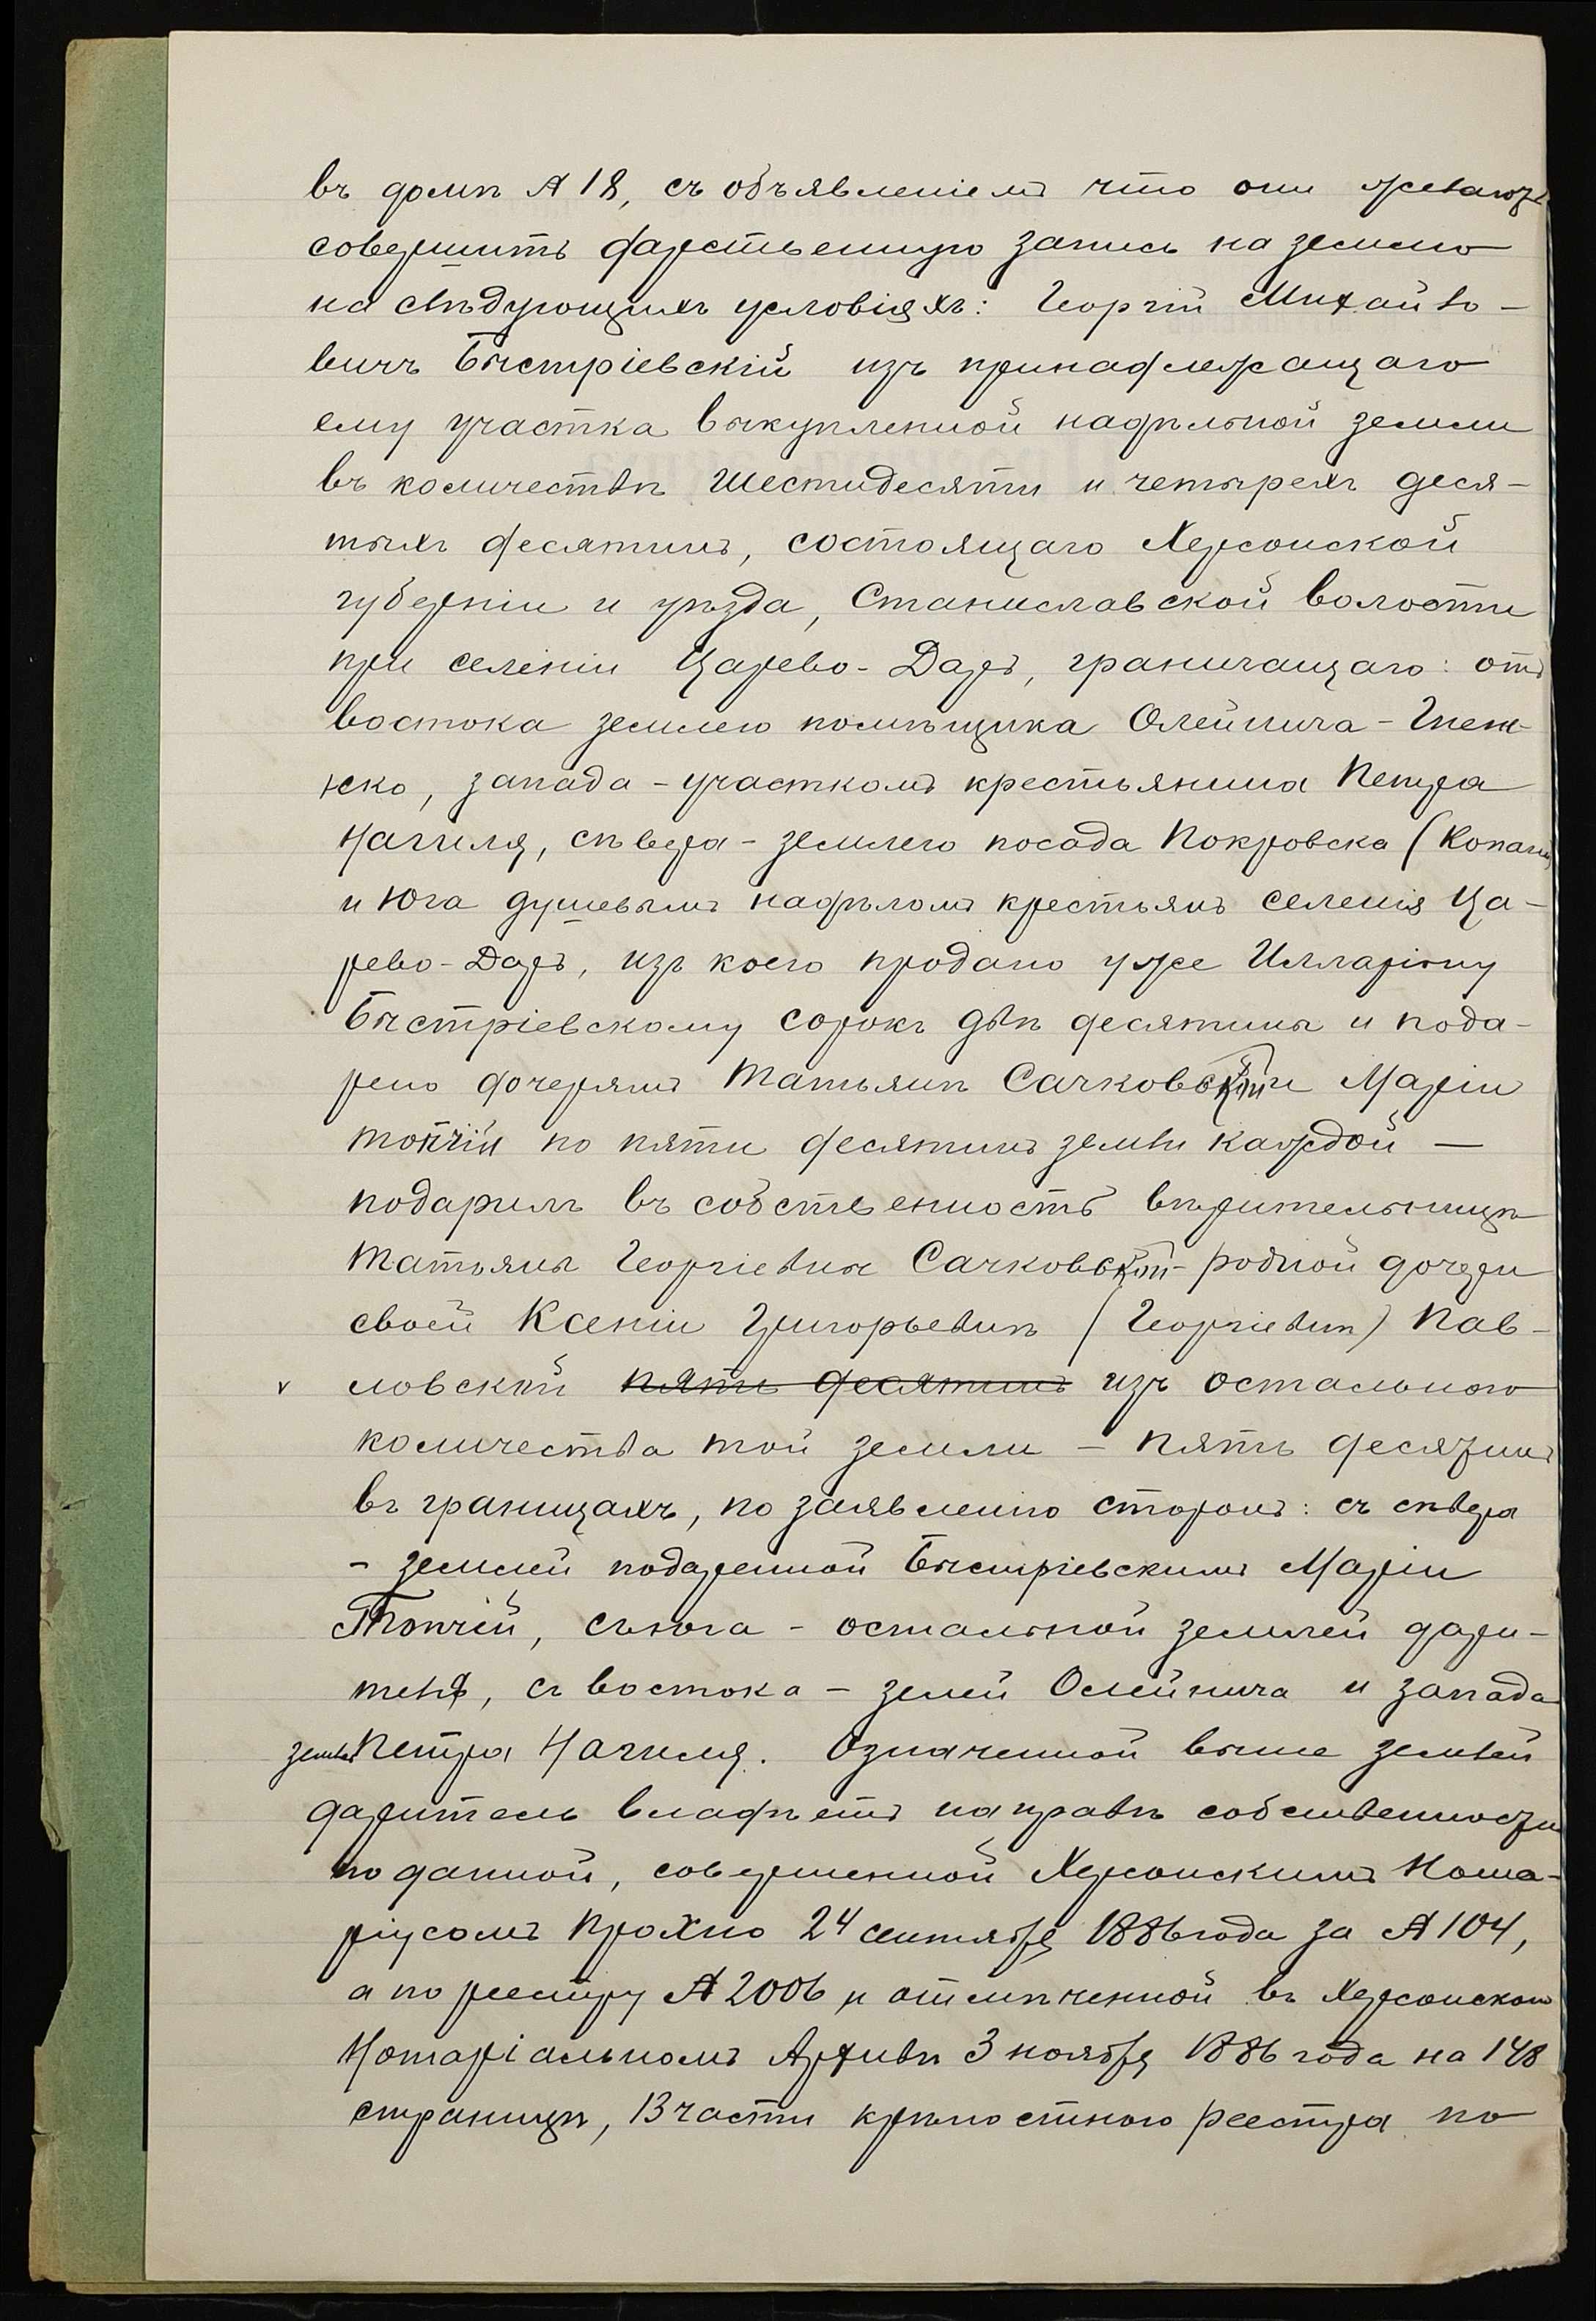 въ домѣ № 18, съ объявленіемъ что они желаютъ
совершить дарственную запись на землю
на слѣдующихъ условіяхъ: Георгій Михайло-
вичъ Быстріевскій изъ принадлежащаго
ему участка выкупленной надѣльной земли
въ количествѣ шестидесяти и четырехъ деся-
тыхъ десятинъ, состоящаго Херсонской
губерніи и уѣзда, Станиславской волости
при селеніи Царево-Даръ, граничащаго: отъ
востока землею помѣщика Олейнича-Гнен-
ско, запада - участкомъ крестьянина Петра
Нагиля, сѣвера - землею посада Покровска (Копани)
и юга душевымъ надѣломъ крестьянъ селенія Ца-
рево-Даръ, изъ коего продано уже Илларіону
Быстріевскому сорокъ двѣ десятины и пода-
рено дочерямъ Татьянѣ Сачковской и Маріи
Топчій по пяти десятинъ земли каждой —
подарилъ въ собственность вѣрительницѣ
Татьяны Георгіевны Сачковской - родной дочери
своей Ксеніи Григорьевнѣ (Георгіевнѣ) Пав-
v ловской пять десятинъ изъ остального
количества той земли - пять десятинъ
въ границахъ, по заявленію сторонъ: съ сѣвера
- землей подаренной Быстріевскимъ Маріи
Топчій, съ юга - остальной землей дари-
теля, съ востока - землей Олейнича и запада
земля Петра Нагиля. Означенной выше землей
даритель владѣетъ на правѣ собственности
по данной, совершенной Херсонскимъ Нота-
ріусомъ Прохно 24 сентября 1886 года за № 104,
а по реестру № 2006 и отмѣченной въ Херсонском
Нотаріальномъ Архивѣ 3 ноября 1886 года на 148
страницѣ, 13 части крѣпостного реестра по